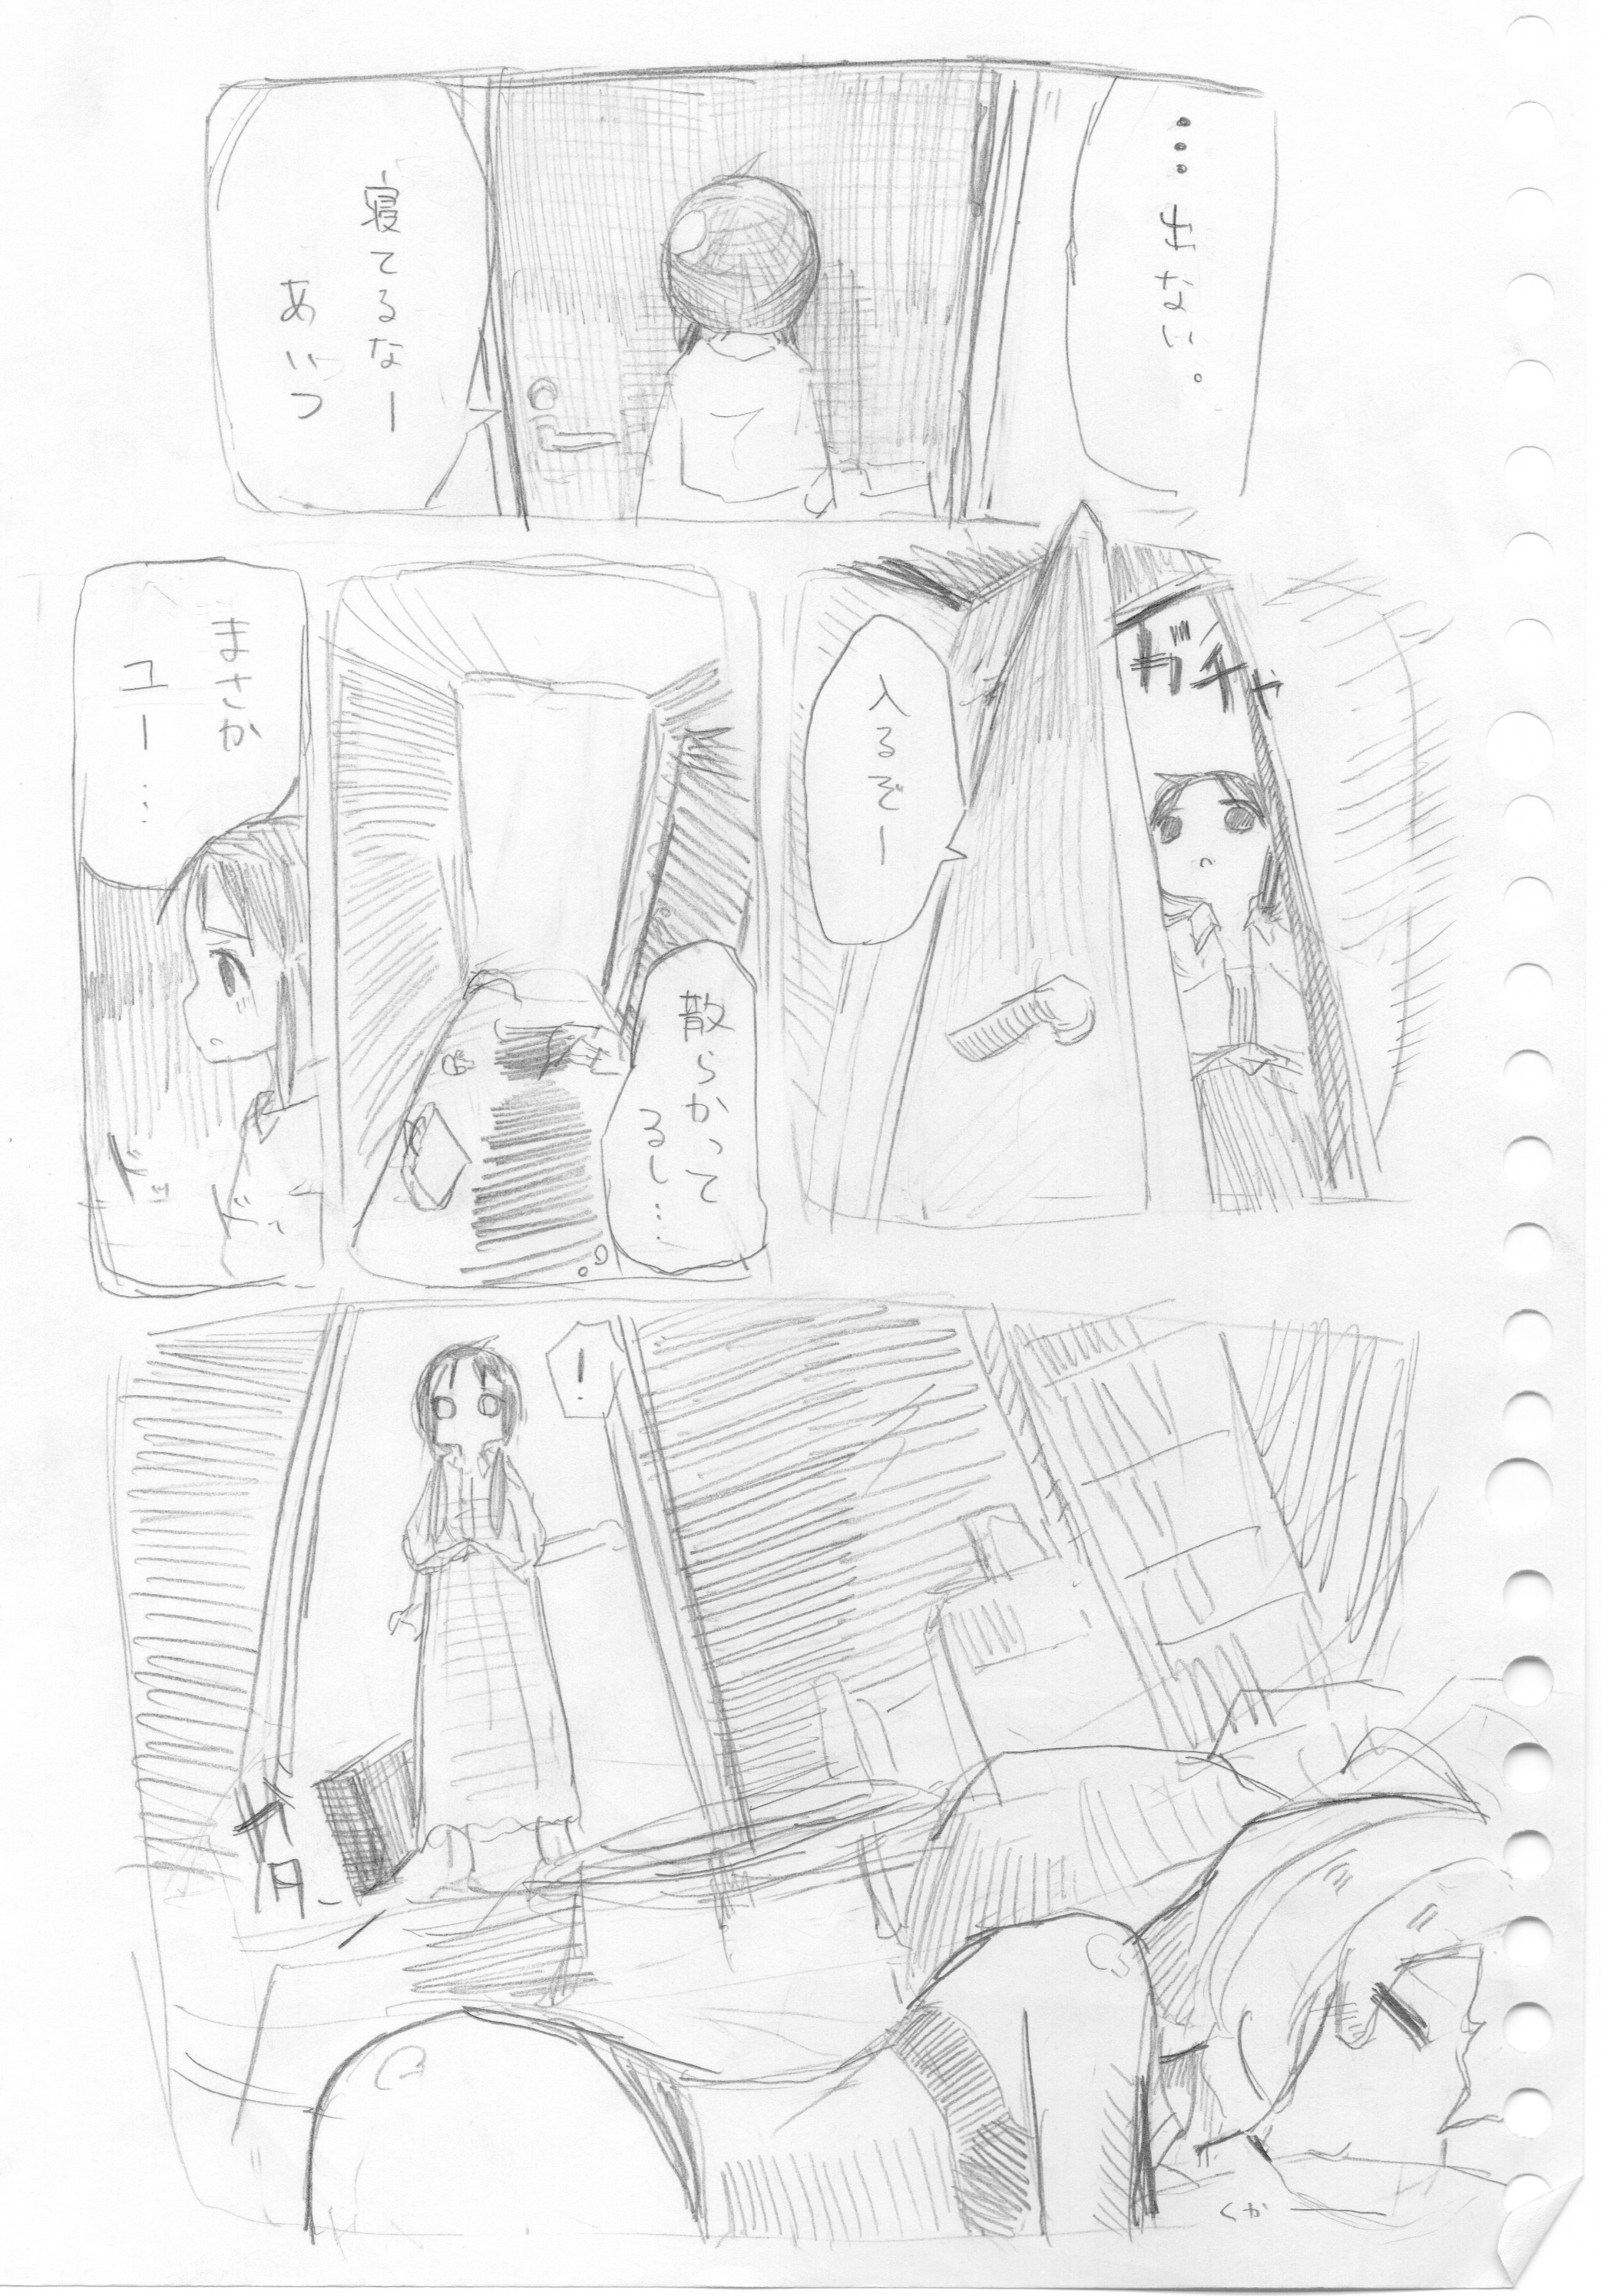 …出ない。
寝てるなー
あいつ
ガチャ
入るぞー
散らかって
るし…
まさか
ユー…
ドッ
ドッ
!
くかー